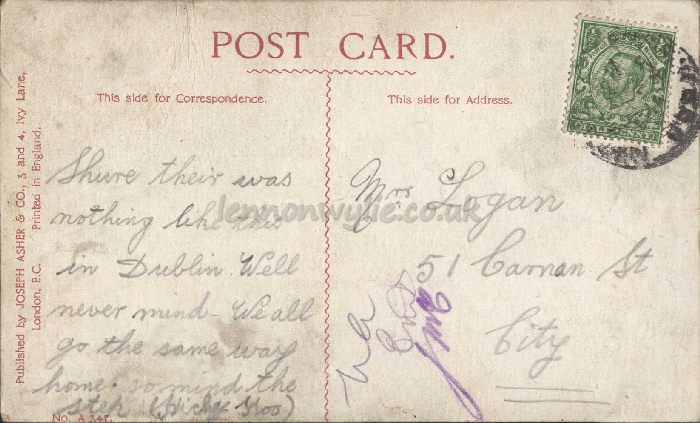 POST CARD.
This side for Correspondence.
This side for Address.
Published by JOSEPH ASHER & CO., 3 and 4, Ivy Lane,
London, E.C. Printed in England.
Shure their was
nothing like this
in Dublin. Well
never mind - We all
go the same way
home. so mind the
step (Hickey Koo)
No. A 347.
Mrs Logan
51 Carnan St
City
HALFPENNY
lennonwylie.co.uk